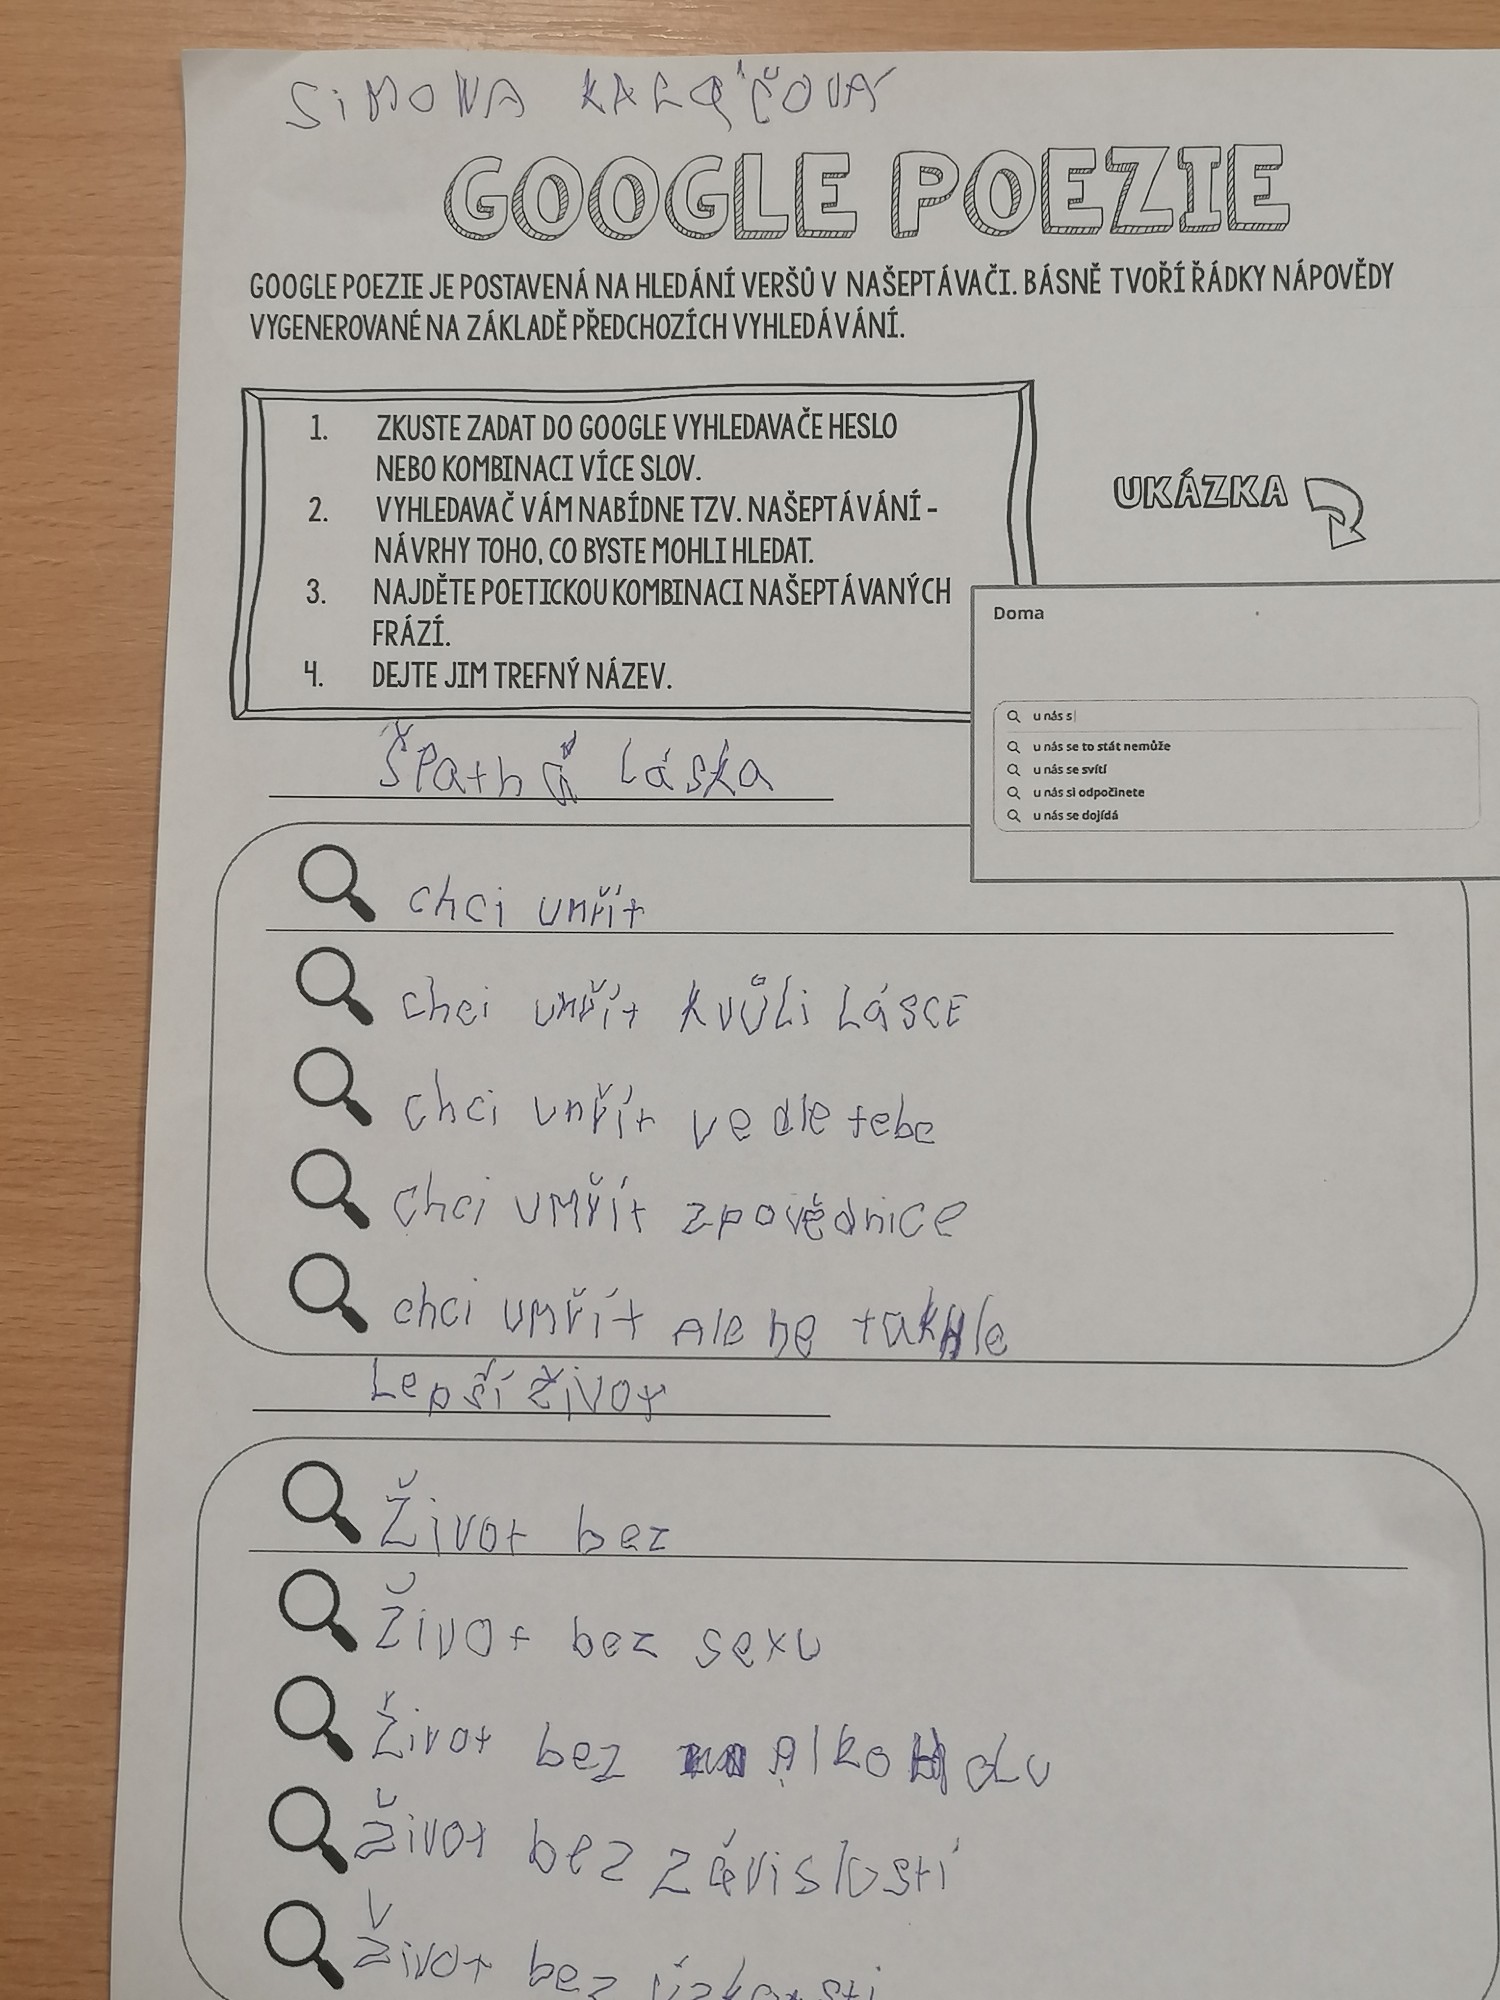 SiMONA KALQ'ČOVÁ
GOOGLE POEZIE
GOOGLE POEZIE JE POSTAVENÁ NA HLEDÁNÍ VERŠŮ V NAŠEPTÁVAČI. BÁSNĚ TVOŘÍ ŘÁDKY NÁPOVĚDY
VYGENEROVANÉ NA ZÁKLADĚ PŘEDCHOZÍCH VYHLEDÁVÁNÍ.
1. ZKUSTE ZADAT DO GOOGLE VYHLEDAVAČE HESLO
NEBO KOMBINACI VÍCE SLOV.
2. VYHLEDAVAČ VÁM NABÍDNE TZV. NAŠEPTÁVÁNÍ -
NÁVRHY TOHO, CO BYSTE MOHLI HLEDAT.
3. NAJDĚTE POETICKOU KOMBINACI NAŠEPTÁVANÝCH
FRÁZÍ.
4. DEJTE JIM TREFNÝ NÁZEV.
UKÁZKA
Doma
u nás s
u nás se to stát nemůže
u nás se svítí
u nás si odpočinete
u nás se dojídá
Špatná láska
chci umřít
chci umřít kvůli LÁSCE
chci umřít vedle tebe
chci umřít zpovědnice
chci umřít Ale ne takhle
Lepší život
Život bez
Život bez sexu
Život bez AlkoHolu
život bez závislostí
život bez